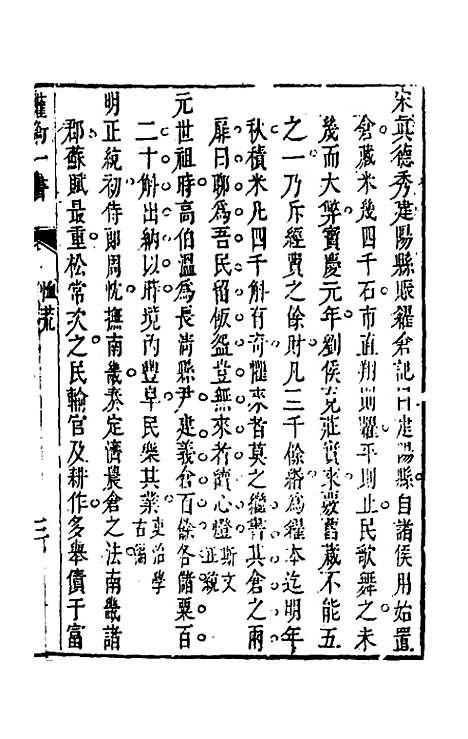 宋真德秀建陽縣賑糶倉記曰建陽縣自諸侯用始置
倉藏米幾四千石市直翔則糶平則止民歌舞之未
幾而大弊寶慶元年劉侯克莊實來覈舊藏不能五
之一乃斥經費之餘財凡三千餘緡為糴本迄明年
秋積米凡四千斛有奇懼來者莫之繼書其倉之兩
扉曰聊為吾民留飯盌豈無來者續心燈斯文正䂓
元世祖時高伯溫為長清縣尹建義倉百餘各儲粟百
二十斛出納以時境內豐阜民樂其業吏治學古編
明正統初侍郎周忱撫南畿奏定濟農倉之法南畿諸
郡蘇賦最重松常次之民輸官及耕作多舉債于富
荒